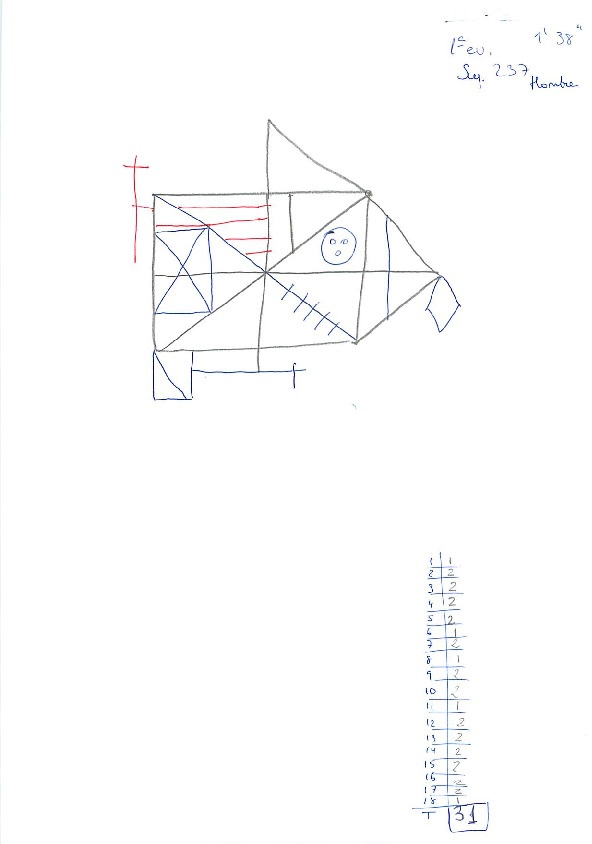 1ª ev. 1' 38"
Seq. 237 Hombre
1 1
2 2
3 2
4 2
5 2
6 1
7 2
8 1
9 2
10 2
11 1
12 2
13 2
14 2
15 2
16 2
17 2
18 1
T 31